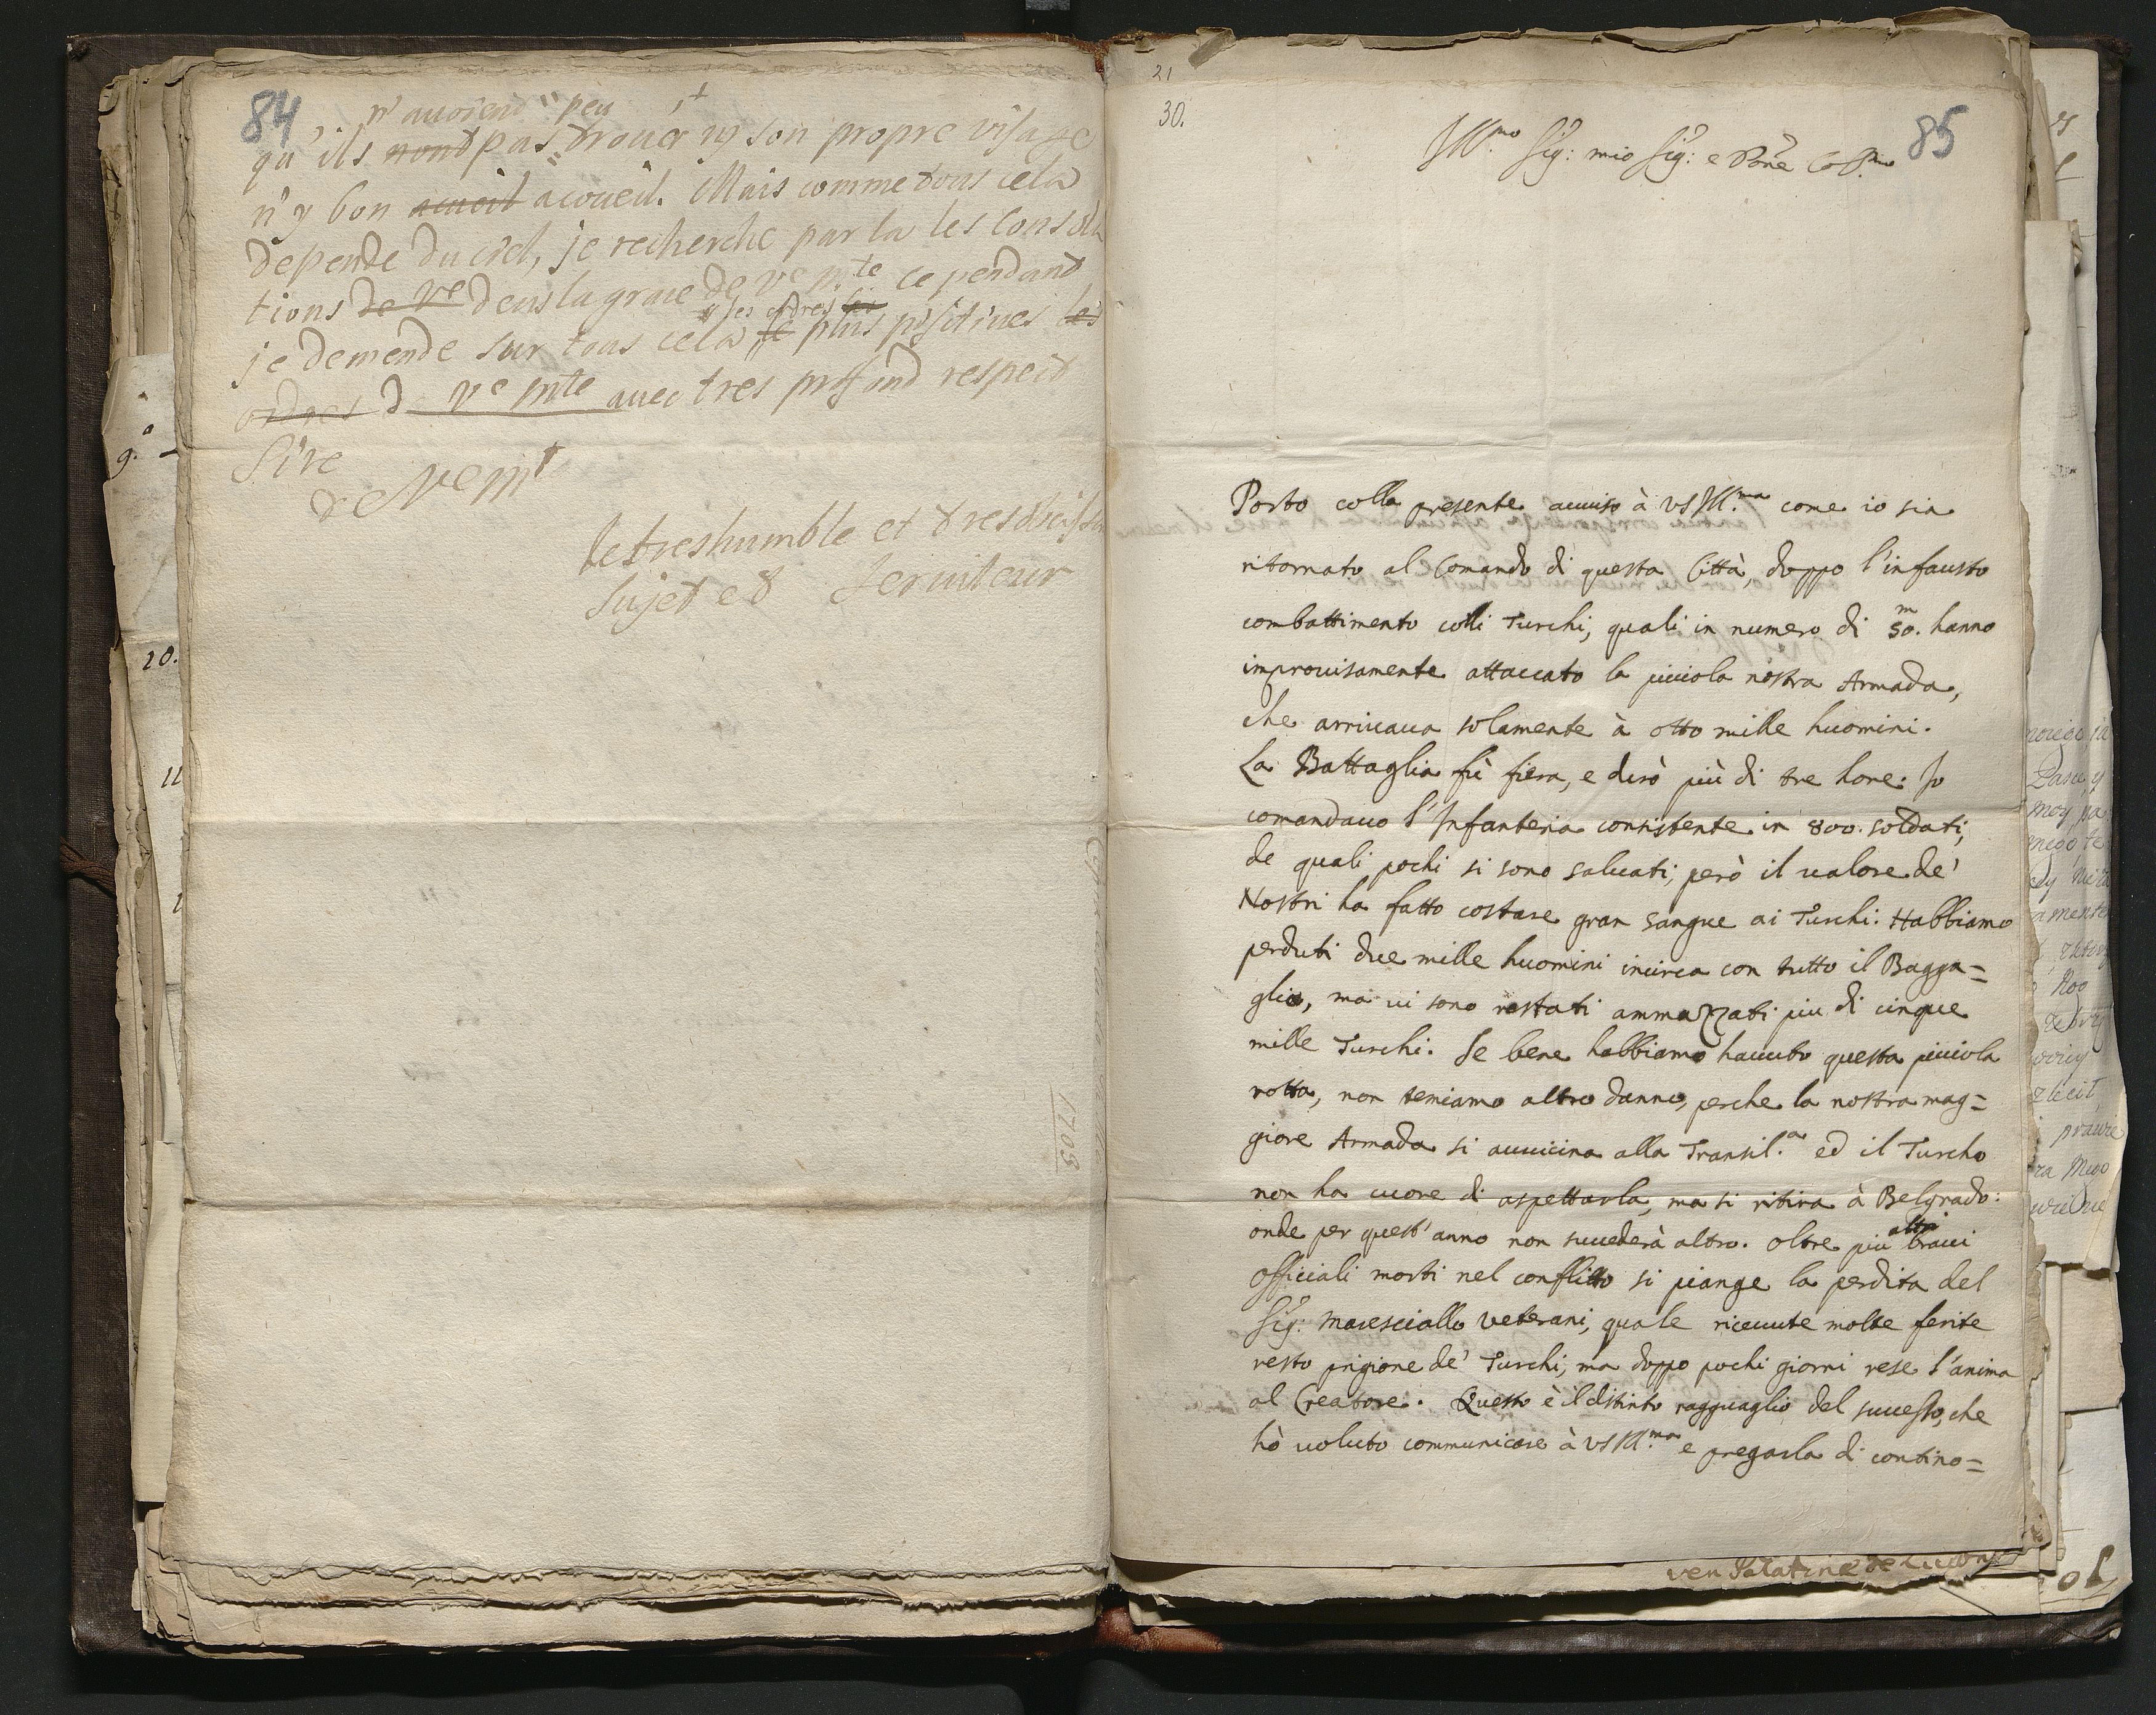 84
n'auoient peu
qu'ils nont pas trouer ny son propre visage
n'y bon acueil acoueil. Mais comme tous cela
depende du ciel, je recherche par la les Consola
tions de ve dens la grace de ve mte ce pendant
ses ordres les
je demende sur tous cela le plus positiues les
ordres d ve mte auec tres profond respect
Sire
de Ve mt
le tres humble et tres obeissan
Sujet et Seruiteur
1705
21
30.
85
Ill.mo Sig: mio Sig: e Pone Col.mo
Porto colla presente auuiso à VS Ill.ma come io sia
ritornato al Comando di questa Città, doppo l'infausto
combattimento colli Turchi, quali in numero di 50.m hanno
improuisamente attaccato la picciola nostra Armada,
che arriuaua solamente à otto mille huomini.
La Battaglia fù fiera, e durò più di tre hore. Io
comandauo l'Infanteria consistente in 800. soldati,
de quali pochi si sono saluati, però il ualore de'
Nostri ha fatto costare gran sangue ai Turchi. Habbiamo
perduti due mille huomini incirca con tutto il Bagga=
glio, ma ui sono restati ammazzati piu di cinque
mille Turchi. Se bene habbiamo hauuto questa picciola
rotta, non temiamo altro danno, perche la nostra mag=
giore Armada si auuicina alla Transil.a ed il Turcho
non ha cuore di aspettarla, ma si ritira à Belgrado:
onde per quest'anno non succederà altro. Oltre più altri braui
Officiali morti nel conflitto si piange la perdita del
Sig: Maresciallo Veterani, quale riceuute molte ferite
resto prigione de' Turchi, ma doppo pochi giorni rese l'anima
al Creatore. Questo è il distinto ragguaglio del successo, che
hò uoluto communicare à VS Ill.ma e pregarla di contino=
ven Palatine de